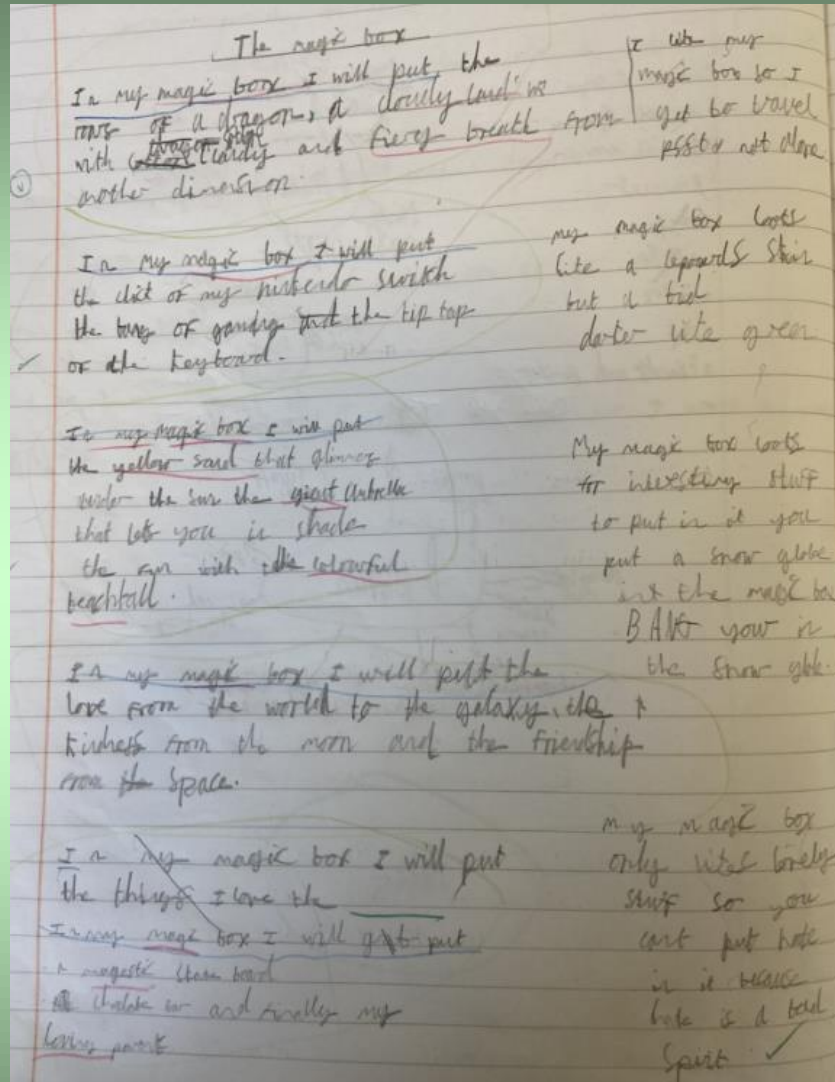 The magic box
In my magic box I will put the
of a dragon, a cloudy land
with and fiery breath from
another dimension.
In my magic box I will put
the click of my nintendo switch
the bang of and the tip tap
of the keyboard.
In my magic box I will put
the yellow sand that
under the sun the giant umbrella
that lets you in shade
the with the colourful
beachball.
In my magic box I will put the
love from the world to the galaxy, the
kindness from the moon and the friendship
from the space.
In my magic box I will put
the things I love the
In my magic box I will put
a
and finally my
loving parent
I like my
magic box so I
get to travel
not alone
my magic box looks
like a leopards skin
but a bid
darker like green
My magic box looks
for interesting stuff
to put in it you
put a snow globe
in the magic box
BANG your in
the snow globe.
my magic box
only likes lovely
stuff so you
cant put hate
in it because
hate is a bad
Spirit